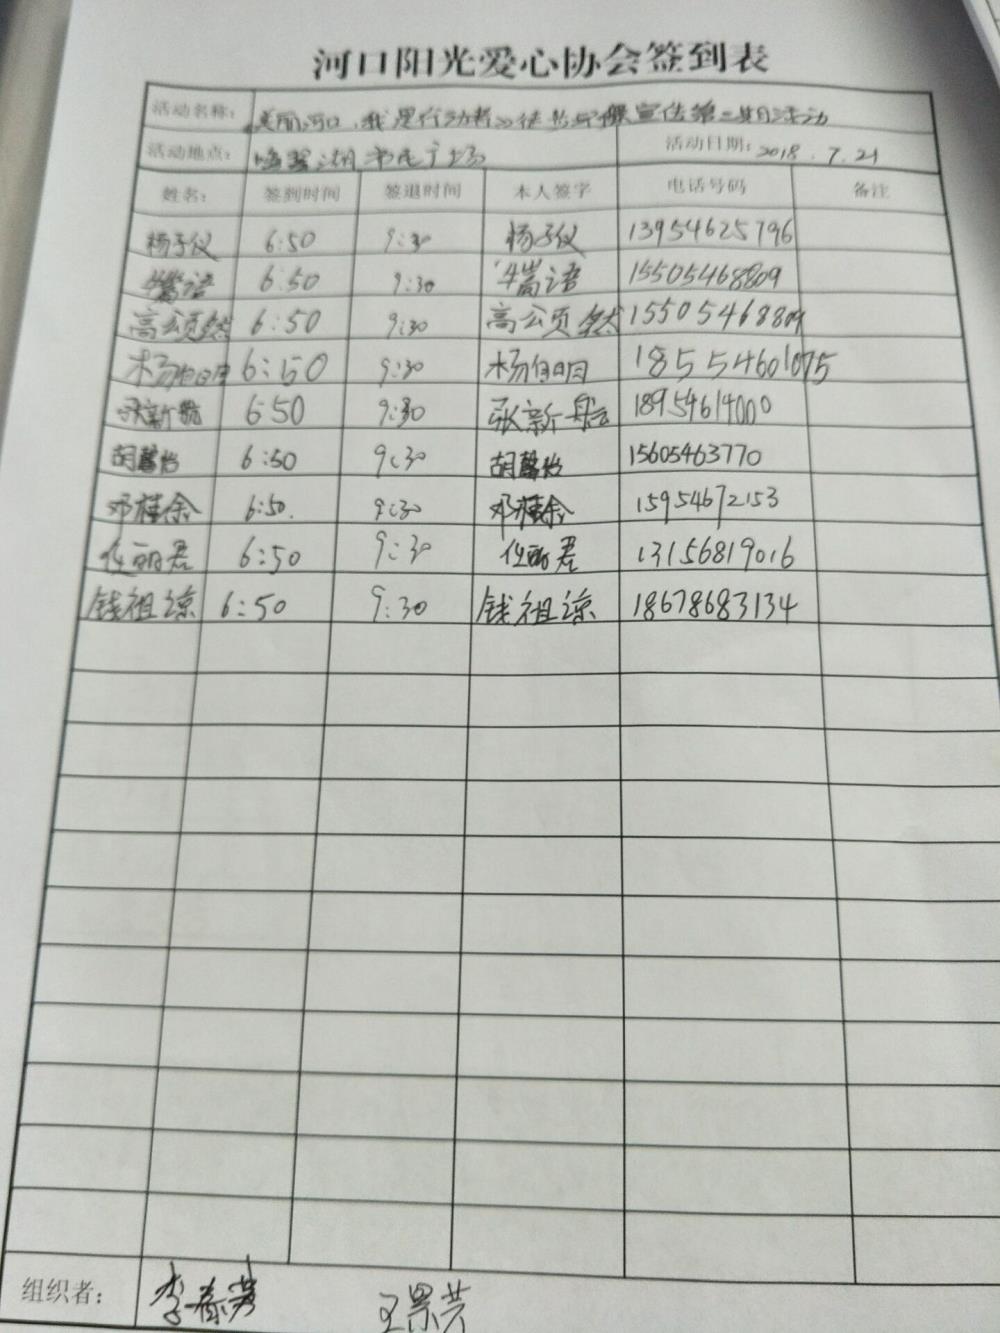 河口阳光爱心协会签到表
活动名称: 美丽河口,我是行动者 环保宣传第二期活动
活动地点: 鸣翠湖市民广场 活动日期: 2018.7.21
姓名: 签到时间 签退时间 本人签字 电话号码 备注
杨子仪 6:50 9:30 杨子仪 13954625796
6:50 9:30 语 15505468809
高 然 6:50 9:30 高 然 15505468809
杨 6:50 9:30 杨 18554601075
张新航 6:50 9:30 张新航 18954614000
胡馨怡 6:50 9:30 胡馨怡 15605463770
邓桂余 6:50. 9:30 邓桂余 15954672153
任丽君 6:50 9:30 任丽君 13156819016
钱祖谅 6:50 9:30 钱祖谅 18678683134
组织者: 李春芳 王景芸